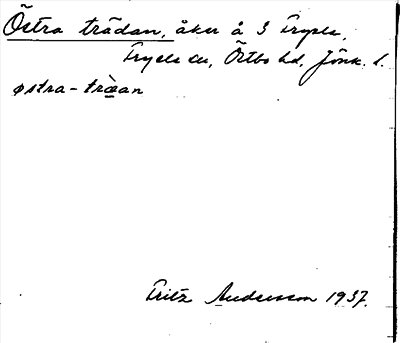 Östra trädan, åker å 3 Tryele,
Tryele by, Östbo hd, Jönk. l.
østra-træ̀an
Fritz Andersson 1937.